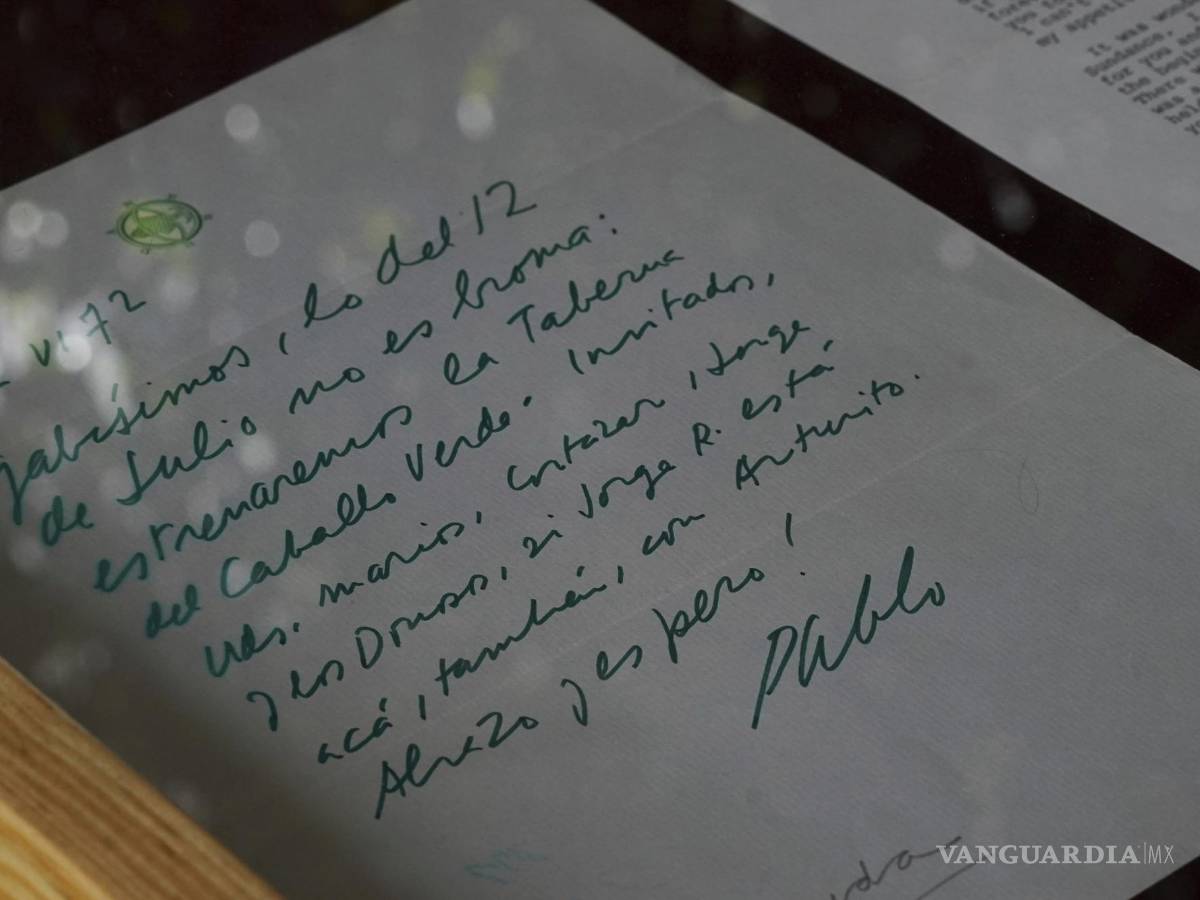 VI 72
gabésimos, lo del 12
de Julio no es broma:
estrenaremos la Taberna
del Caballo Verde. Invitados,
Uds. marios, Cortázar, Jorge
y los Donoso, si Jorge R. está
acá, también, con Arturito.
Abrazo y espero!
Pablo
It was
Sundance,
for you
the
There
was
my
VANGUARDIA|MX